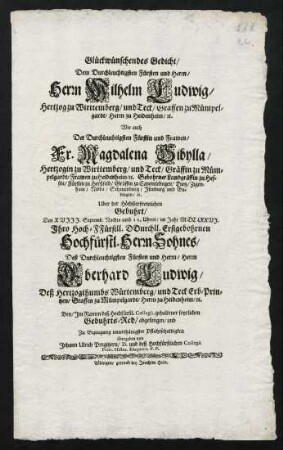 Glückwünschendes Gedicht/
Dem Durchleuchtigsten Fürsten und Herrn/
Herrn Wilhelm Ludwig/
Hertzog zu Würtemberg/ und Teck/ Graffen zu Mümpel-
gardt/ Herrn zu Heidenheim/ ꝛc.
Wie auch
Der Durchleuchtigsten Fürstin und Frawen/
Fr. Magdalena Sibylla/
Hertzogin zu Würtemberg/ und Teck/ Gräffin zu Müm-
pelgardt/ Frawen zu Heidenheim ꝛc. Gebohrner Landgräffin zu Hes-
sen/ Fürstin zu Herßfeld/ Gräffin zu Catzenelnbogen/ Dietz/ Ziegen-
hain/ Nidda/ Schaumburg/ Ysenburg und Bü-
dingen/ ꝛc.
Uber der Höchsterfrewlichen
Geburt/
Den XVIII. Septemb. Nachts umb Uhren/ im Jahr M.DC.LXXVI.
Ihro Hoch-Fürstl. Durchl. Erstgebohrnen
Hochfürstl. Herrn Sohnes/
Deß Durchleuchtigsten Fürsten und Herrn/ Herrn
Eberhard Ludwig/
Deß Hertzogthumbs Würtemberg/ und Teck Erb-Prin-
tzen/ Graffen zu Mümpelgardt/ Herrn zu Heidenheim/ ꝛc.
Bey/ Im Namen deß Hochfürstl. Collegii gehaltener feyrlichen
Gebuhrts-Red/ abgesungen/ und
Zu Bezeugung unterthänigster Pflichtschuldigkeit
übergeben von
Johann Ulrich Pregitzern/ D. und deß Hochfürstlichen Collegii
Polit. Histor. Eloquent. P. P.
Tübingen/ gedruckt bey Joachim Hein.